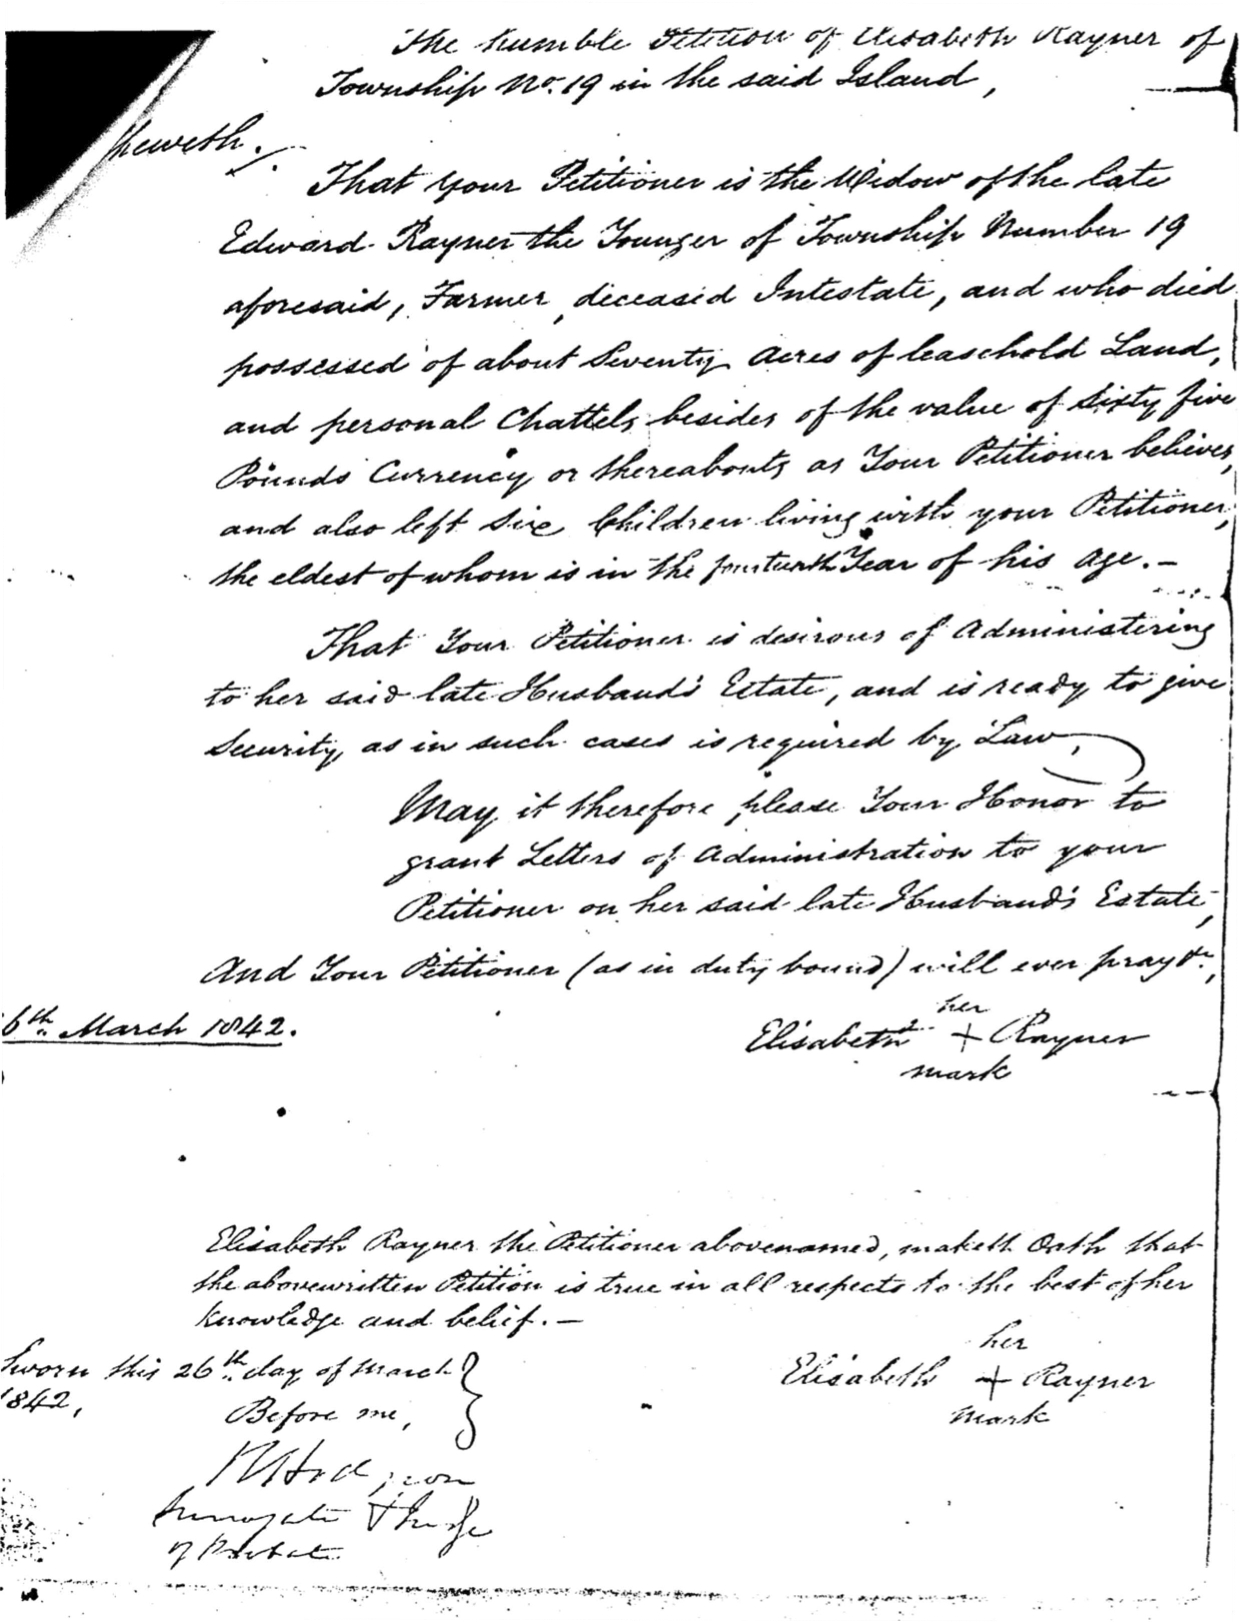 The humble Petition of Elisabeth Rayner of
Township No. 19 in the said Island,
heweth.
That Your Petitioner is the Widow of the late
Edward Rayner the Younger of Township Number 19
aforesaid, Farmer, deceased Intestate, and who died
possessed of about Seventy Acres of leasehold Land,
and personal Chattels besides of the value of Sixty five
Pounds Currency or thereabouts as Your Petitioner believes,
and also left Six Children living with your Petitioner,
the eldest of whom is in the fourteenth Year of his age. —
That Your Petitioner is desirous of Administering
to her said late Husband's Estate, and is ready to give
Security, as in such cases is required by Law,
May it therefore please Your Honor to
grant Letters of Administration to your
Petitioner on her said late Husband's Estate,
And Your Petitioner (as in duty bound) will ever pray &c,
6th March 1842.
her
Elisabeth + Rayner
mark
Elisabeth Rayner the Petitioner abovenamed, maketh Oath that
the abovewritten Petition is true in all respects to the best of her
knowledge and belief. —
Sworn this 26th day of March
1842,
Before me,
her
Elisabeth + Rayner
mark
Hodgson
Surrogate & Judge
of Probate